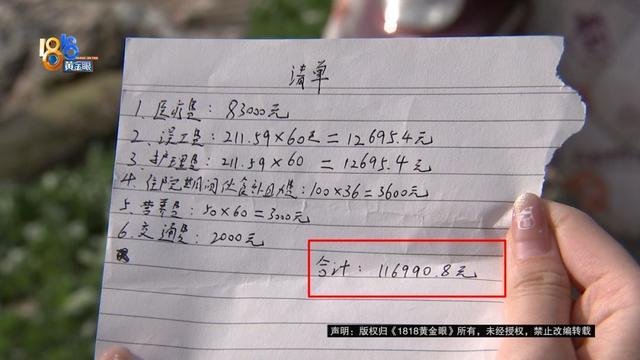 1818
黄金眼
清单
1. 医疗费: 83000元
2. 误工费: 211.59×60天=12695.4元
3. 护理费: 211.59×60 =12695.4元
4. 住院期间伙食补助费: 100×36=3600元
5. 营养费: 50×60=3000元
6. 交通费: 2000元
合计: 116990.8元
声明：版权归《1818黄金眼》所有，未经授权，禁止改编转载